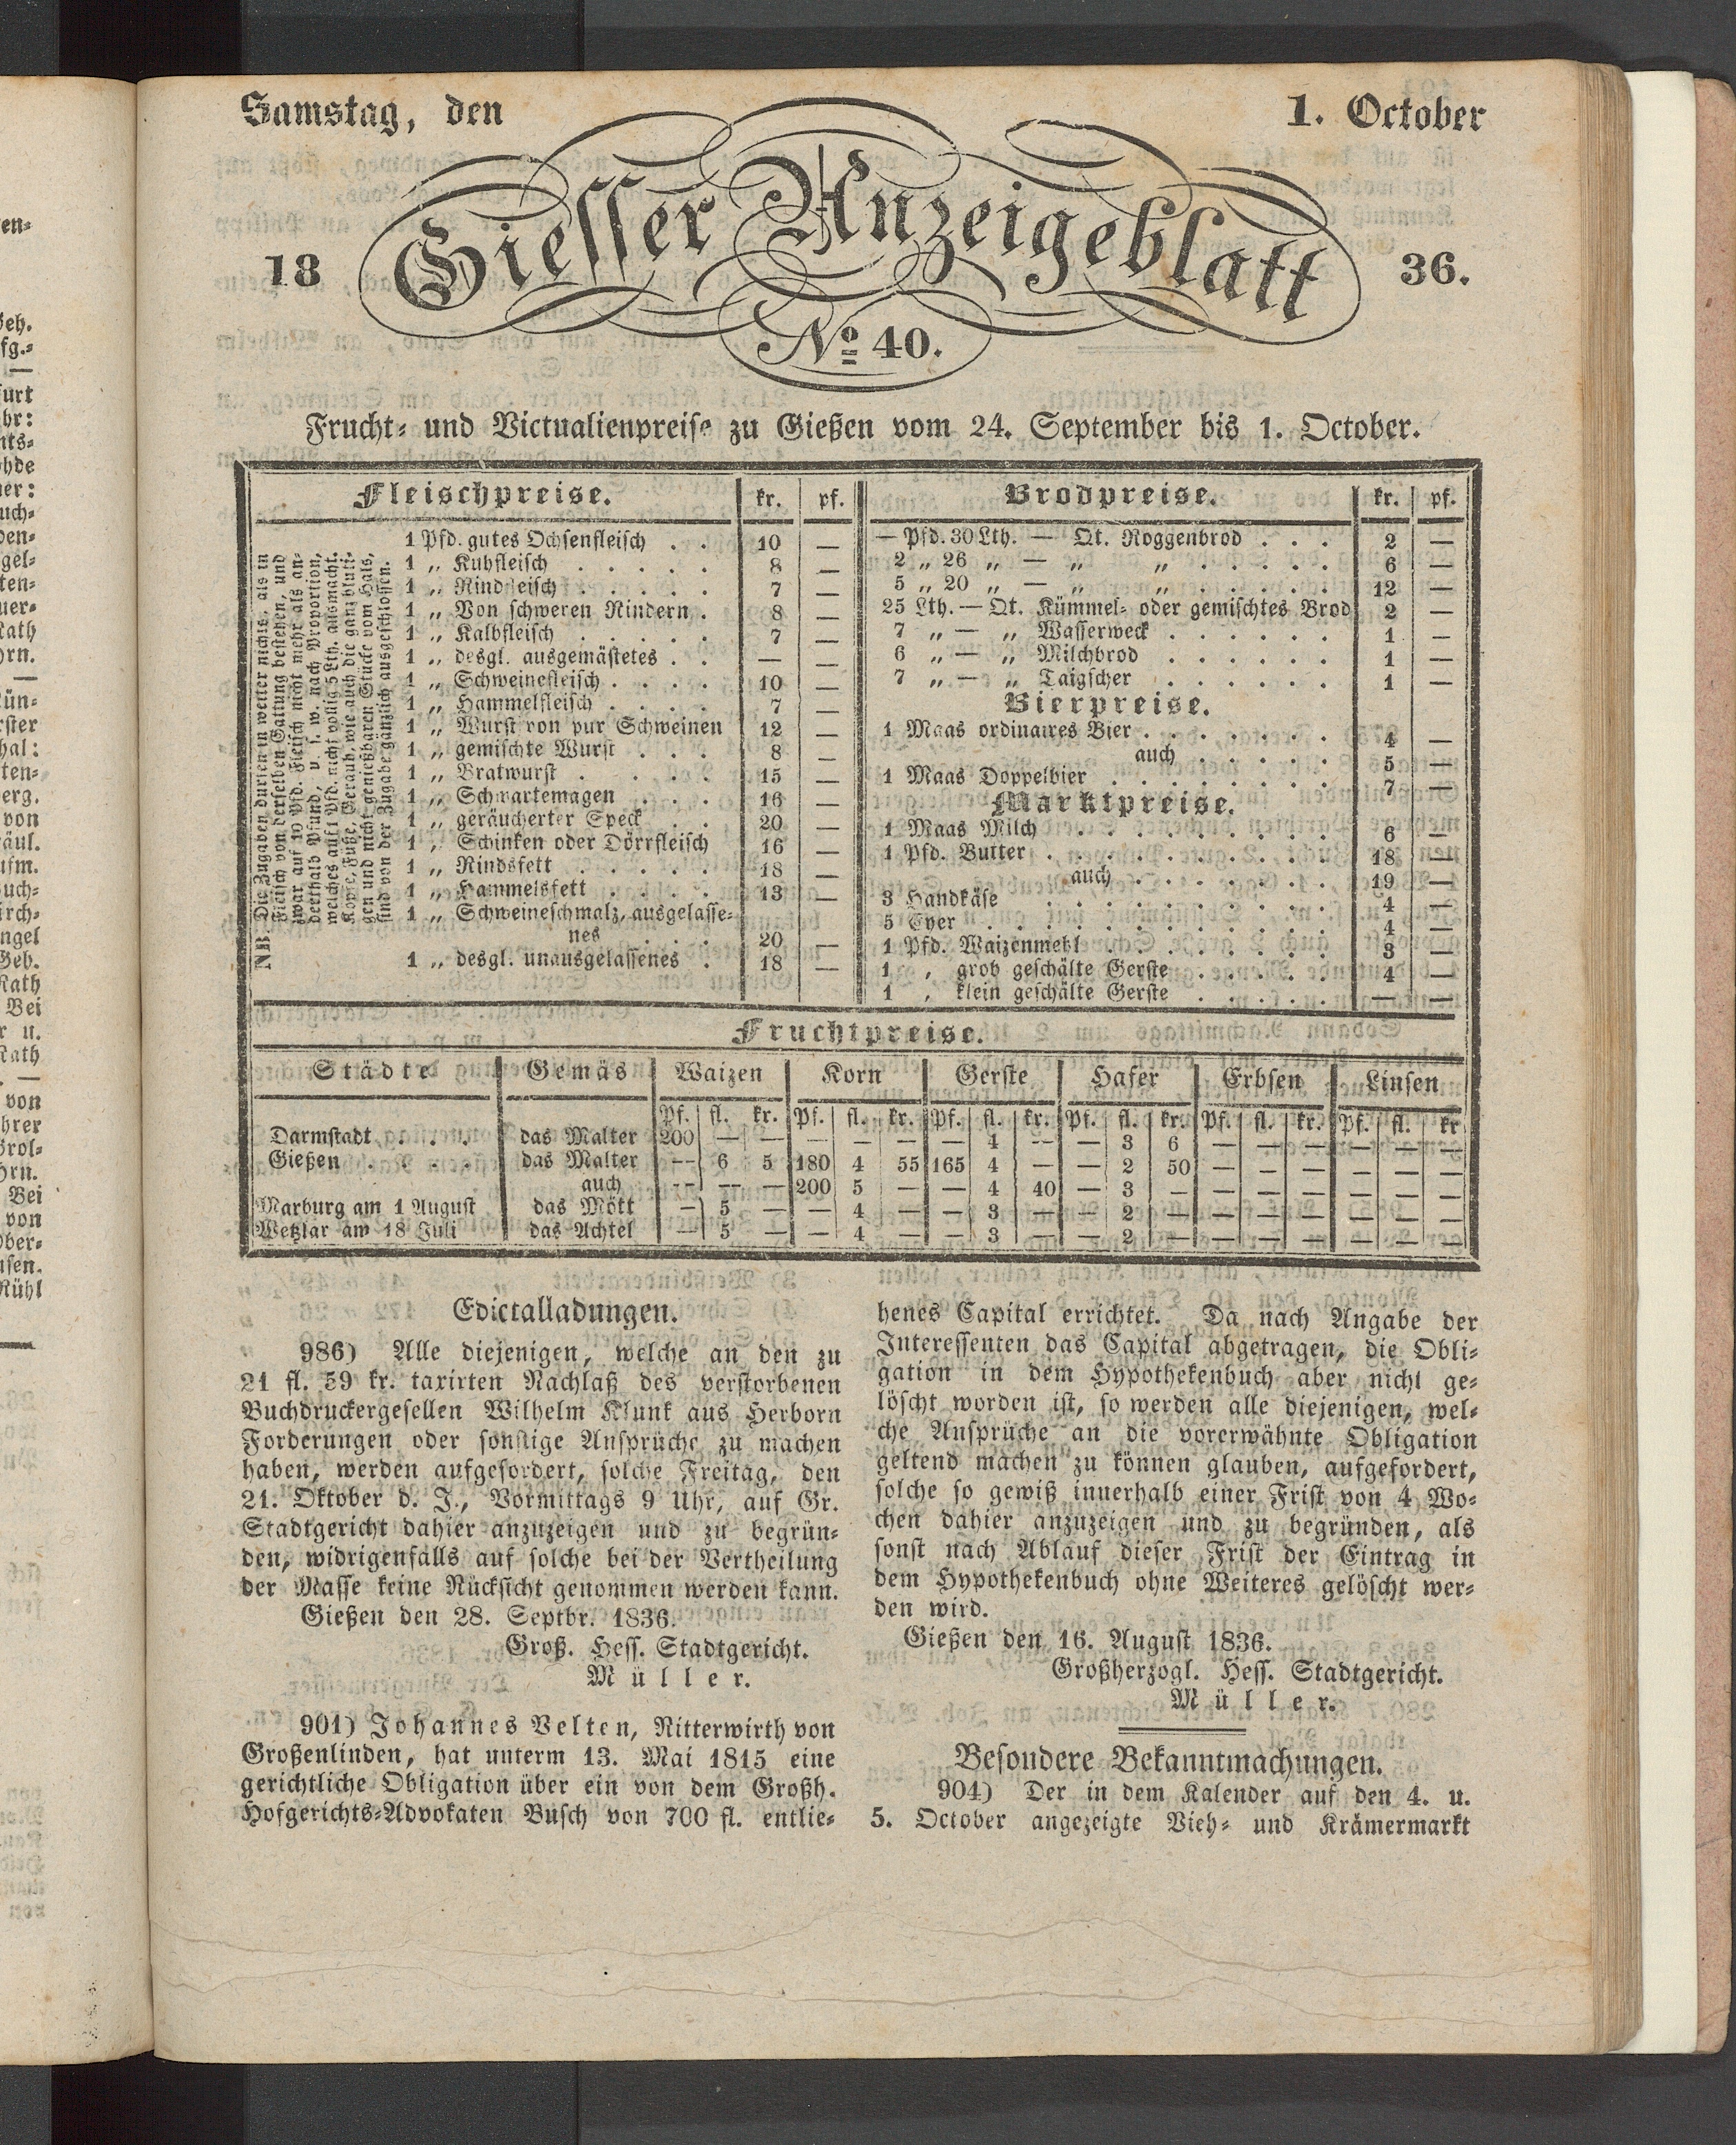 Samstag, den 1. October
18 Giesser Anzeigeblatt 36.
№ 40.
Frucht- und Victualienpreise zu Gießen vom 24. September bis 1. October.
Fleischpreise. kr. pf.
NB. Die Zugaben dürfen in weiter nichts, als in
Fleisch von derselben Gattung bestehen, und
zwar auf 10 Pfd. Fleisch nicht mehr als an-
derthalb Pfund, u. s. w. nach Proportion,
welches auf 1 Pfd. nicht völlig 5 Lth. ausmacht.
Köpfe, Füße, Geraub, wie auch die ganz bluti-
gen und nicht genießbaren Stücke vom Hals,
sind von der Zugabe gänzlich ausgeschlossen.
1 Pfd. gutes Ochsenfleisch . . 10 —
1 „ Kuhfleisch . . . . . 8 —
1 „ Rindfleisch . . . . . 7 —
1 „ Von schweren Rindern . 8 —
1 „ Kalbfleisch . . . . . 7 —
1 „ desgl. ausgemästetes . . — —
1 „ Schweinefleisch . . . . 10 —
1 „ Hammelfleisch . . . . 7 —
1 „ Wurst von pur Schweinen 12 —
1 „ gemischte Wurst . . . 8 —
1 „ Bratwurst . . . . 15 —
1 „ Schwartemagen . . . 16 —
1 „ geräucherter Speck . . 20 —
1 „ Schinken oder Dörrfleisch 16 —
1 „ Rindsfett . . . . . 18 —
1 „ Hammelsfett . . . . 13 —
1 „ Schweineschmalz, ausgelasse-
nes . . . 20 —
1 „ desgl. unausgelassenes . 18 —
Brodpreise. kr. pf.
— Pfd. 30 Lth. — Qt. Roggenbrod . . . 2 —
2 „ 26 „ — „ „ . . . . . 6 —
5 „ 20 „ — „ „ . . . . . 12 —
25 Lth. — Qt. Kümmel- oder gemischtes Brod 2 —
7 „ — „ Wasserweck . . . . . . 1 —
6 „ — „ Milchbrod . . . . . . 1 —
7 „ — „ Taigscher . . . . . . 1 —
Bierpreise.
1 Maas ordinaires Bier . . . . . . . 4 —
auch . . . . . 5 —
1 Maas Doppelbier . . . . . . . . 7 —
Marktpreise.
1 Maas Milch . . . . . . . . . 6 —
1 Pfd. Butter . . . . . . . . . . 18 —
auch . . . . . . . 19 —
3 Handkäse . . . . . . . . . . 4 —
5 Eyer . . . . . . . . . . . . 4 —
1 Pfd. Waizenmehl . . . . . . . . 3 —
1 „ grob geschälte Gerste . . . . . 4 —
1 „ klein geschälte Gerste . . . . . — —
Fruchtpreise.
Städte Gemäs Waizen Korn Gerste Hafer Erbsen Linsen
Pf. fl. kr. Pf. fl. kr. Pf. fl. kr. Pf. fl. kr. Pf. fl. kr. Pf. fl. kr
Darmstadt . . . das Malter 200 — — — — — — 4 — — 3 6 — — — — — —
Gießen . . . . das Malter — 6 5 180 4 55 165 4 — — 2 50 — — — — — —
auch — — — 200 5 — — 4 40 — 3 — — — — — — —
Marburg am 1 August das Mött — 5 — — 4 — — 3 — — 2 — — — — — — —
Wetzlar am 18 Juli das Achtel — 5 — — 4 — — 3 — — 2 — — — — — — —
Edictalladungen.
986) Alle diejenigen, welche an den zu
21 fl. 59 kr. taxirten Nachlaß des verstorbenen
Buchdruckergesellen Wilhelm Klunk aus Herborn
Forderungen oder sonstige Ansprüche zu machen
haben, werden aufgefordert, solche Freitag, den
21. Oktober d. J., Vormittags 9 Uhr, auf Gr.
Stadtgericht dahier anzuzeigen und zu begrün-
den, widrigenfalls auf solche bei der Vertheilung
der Masse keine Rücksicht genommen werden kann.
Gießen den 28. Septbr. 1836.
Groß. Hess. Stadtgericht.
Müller.
901) Johannes Velten, Ritterwirth von
Großenlinden, hat unterm 13. Mai 1815 eine
gerichtliche Obligation über ein von dem Großh.
Hofgerichts-Advokaten Busch von 700 fl. entlie-
henes Capital errichtet. Da nach Angabe der
Interessenten das Capital abgetragen, die Obli-
gation in dem Hypothekenbuch aber nicht ge-
löscht worden ist, so werden alle diejenigen, wel-
che Ansprüche an die vorerwähnte Obligation
geltend machen zu können glauben, aufgefordert,
solche so gewiß innerhalb einer Frist von 4 Wo-
chen dahier anzuzeigen und zu begründen, als
sonst nach Ablauf dieser Frist der Eintrag in
dem Hypothekenbuch ohne Weiteres gelöscht wer-
den wird.
Gießen den 16. August 1836.
Großherzogl. Hess. Stadtgericht.
Müller.
Besondere Bekanntmachungen.
904) Der in dem Kalender auf den 4. u.
5. October angezeigte Vieh- und Krämermarkt